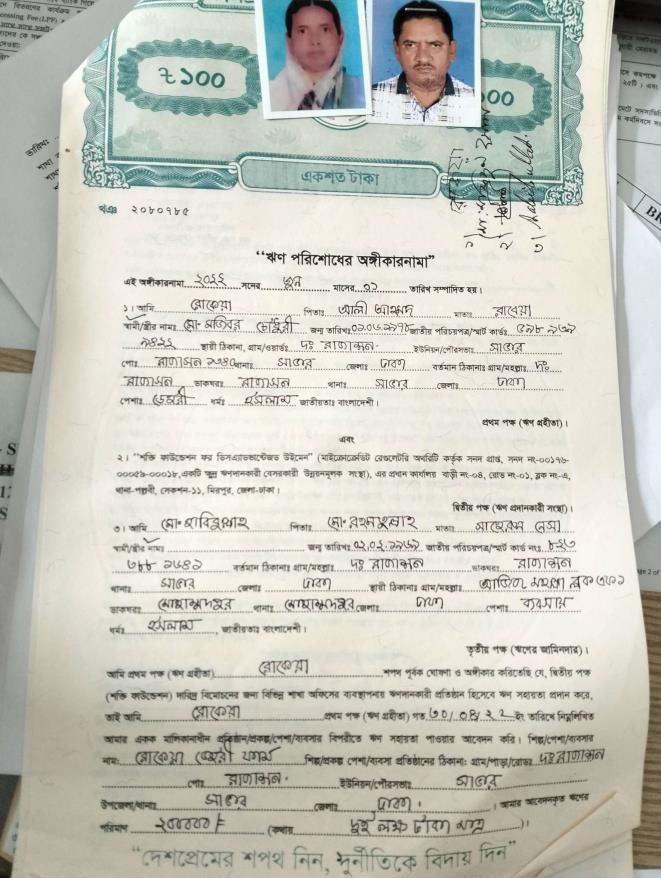 ৳১০০
১০০
একশত টাকা
খঞ ২০৮০৭৮৫
রোকেয়া
Habibullah
"ঋণ পরিশোধের অঙ্গীকারনামা"
এই অঙ্গীকারনামা ২০২২ সনের জুন মাসের ০১ তারিখ সম্পাদিত হয়।
১। আমি রোকেয়া পিতাঃ আলী আহম্মদ মাতাঃ রাবেয়া
স্বামী/স্ত্রীর নামঃ মো: মজিবর চৌধুরী জন্ম তারিখঃ জাতীয় পরিচয়পত্র/স্মার্ট কার্ডঃ
স্থায়ী ঠিকানা, গ্রাম/ওয়ার্ডঃ দঃ রাজাসন ইউনিয়ন/পৌরসভাঃ সাভার
পোঃ রাজাসন থানাঃ সাভার জেলাঃ ঢাকা বর্তমান ঠিকানাঃ গ্রাম/মহল্লাঃ দঃ
রাজাসন ডাকঘরঃ রাজাসন থানাঃ সাভার জেলাঃ ঢাকা
পেশাঃ ধর্মঃ ইসলাম জাতীয়তাঃ বাংলাদেশী।
প্রথম পক্ষ (ঋণ গ্রহীতা)।
এবং
২। "শক্তি ফাউন্ডেশন ফর ডিসএ্যাডভান্টেজড উইমেন" (মাইক্রোক্রেডিট রেগুলেটরি অথরিটি কর্তৃক সনদ প্রাপ্ত, সনদ নং-০০১৭৬-
০০০৫৯-০০০১৮, একটি ক্ষুদ্র ঋণদানকারী বেসরকারী উন্নয়নমূলক সংস্থা), এর প্রধান কার্যালয় বাড়ী নং-০৪, রোড নং-০১, ব্লক নং-এ,
থানা-পল্লবী, সেকশন-১১, মিরপুর, জেলা-ঢাকা।
দ্বিতীয় পক্ষ (ঋণ প্রদানকারী সংস্থা)।
৩। আমি মো: হাবিবুল্লাহ পিতাঃ মো: রহমতুল্লাহ মাতাঃ
স্বামী/স্ত্রীর নামঃ জন্ম তারিখঃ জাতীয় পরিচয়পত্র/স্মার্ট কার্ড নংঃ
বর্তমান ঠিকানাঃ গ্রাম/মহল্লাঃ দঃ রাজাসন ডাকঘরঃ রাজাসন
থানাঃ সাভার জেলাঃ ঢাকা স্থায়ী ঠিকানাঃ গ্রাম/মহল্লাঃ
ডাকঘরঃ মোহাম্মদপুর থানাঃ মোহাম্মদপুর জেলাঃ ঢাকা পেশাঃ ব্যবসায়
ধর্মঃ ইসলাম, জাতীয়তাঃ বাংলাদেশী।
তৃতীয় পক্ষ (ঋণের জামিনদার)।
আমি প্রথম পক্ষ (ঋণ গ্রহীতা) রোকেয়া শপথ পূর্বক ঘোষণা ও অঙ্গীকার করিতেছি যে, দ্বিতীয় পক্ষ
(শক্তি ফাউন্ডেশন) দারিদ্র বিমোচনের জন্য বিভিন্ন শাখা অফিসের ব্যবস্থাপনায় ঋণদানকারী প্রতিষ্ঠান হিসেবে ঋণ সহায়তা প্রদান করে,
তাই আমি রোকেয়া প্রথম পক্ষ (ঋণ গ্রহীতা) গত ইং তারিখে নিম্নলিখিত
আমার একক মালিকানাধীন প্রতিষ্ঠান/প্রকল্প/পেশা/ব্যবসার বিপরীতে ঋণ সহায়তা পাওয়ার আবেদন করি। শিল্প/পেশা/ব্যবসার
নামঃ রোকেয়া ফার্ম শিল্প/প্রকল্প/পেশা/ব্যবসা প্রতিষ্ঠানের ঠিকানাঃ গ্রাম/পাড়া/রোডঃ দঃ রাজাসন
পোঃ রাজাসন ইউনিয়ন/পৌরসভাঃ সাভার
উপজেলা/থানাঃ সাভার জেলাঃ ঢাকা। আমার আবেদনকৃত ঋণের
পরিমাণ ২০০০০০/= (কথায় দুই লক্ষ টাকা মাত্র)।
"দেশপ্রেমের শপথ নিন, দুর্নীতিকে বিদায় দিন"